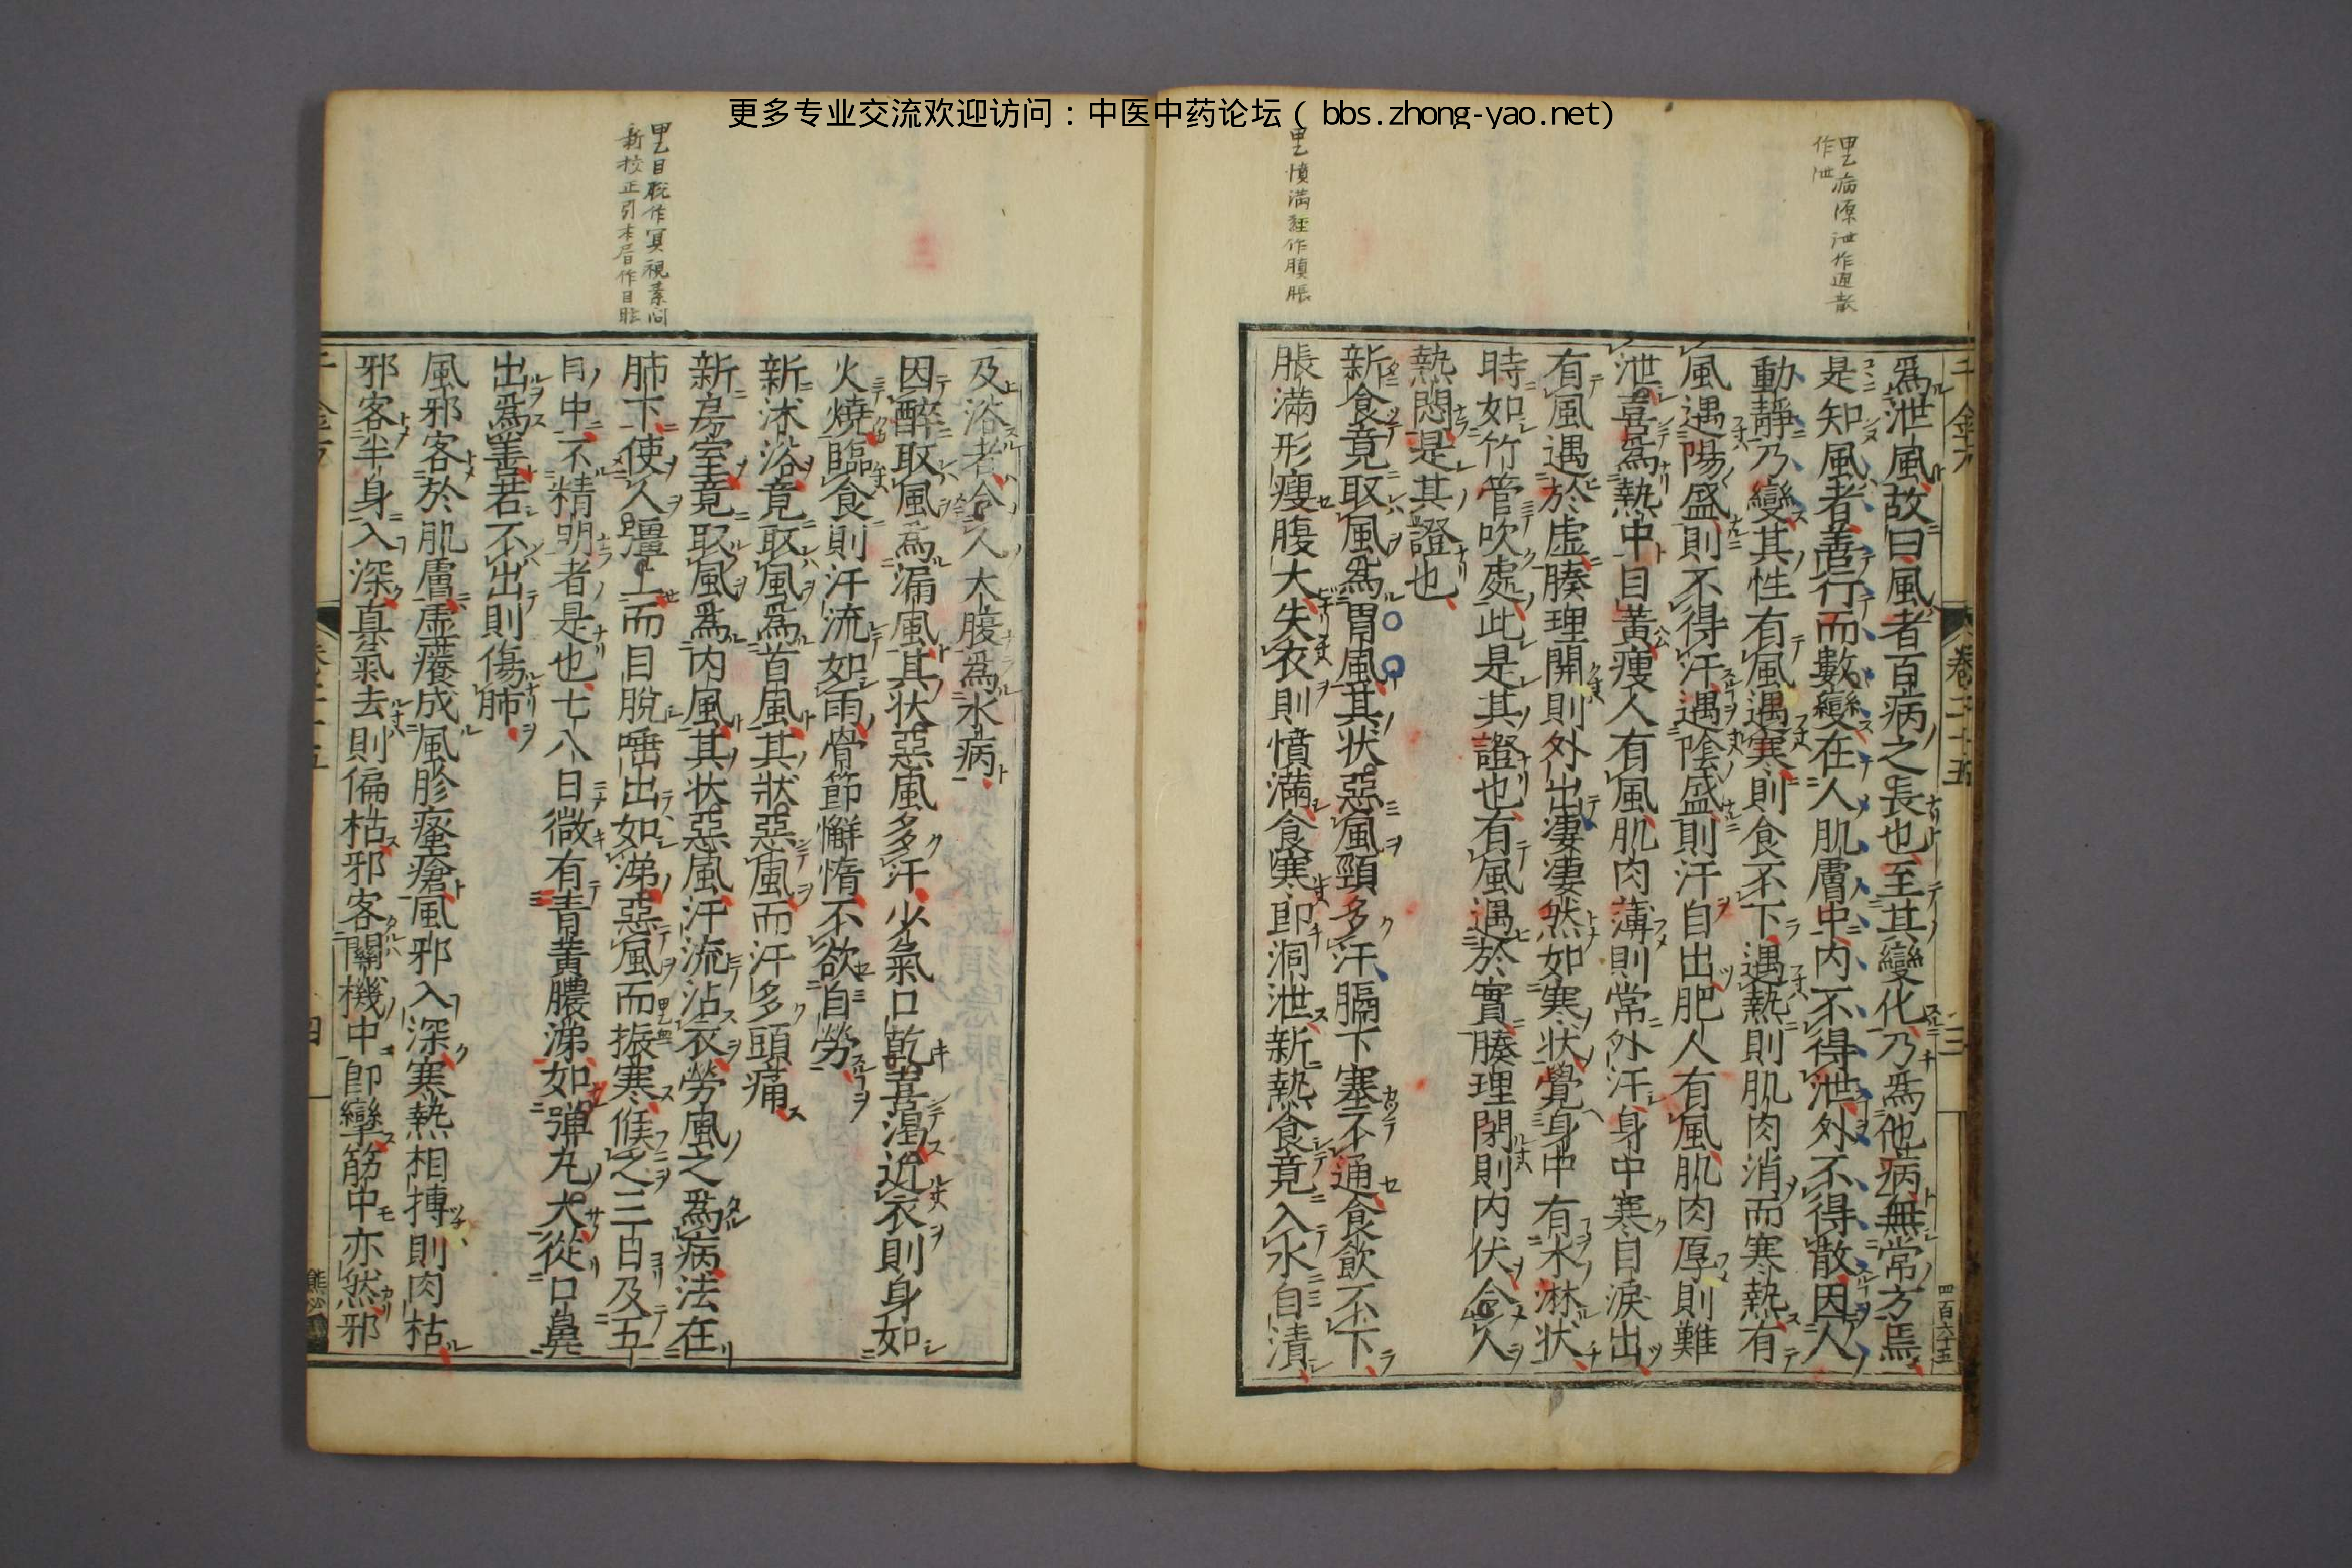 更多专业交流欢迎访问：中医中药论坛（bbs.zhong-yao.net）
甲乙病源泄作通散
作泄
甲乙憤滿註作䐜脹
千金方
卷二十五
三
四百六十五
爲泄風故曰風者百病之長也至其變化乃爲他病無常方焉
是知風者善行而數變在人肌膚中内不得泄外不得散因人
動靜乃變其性有風遇寒則食不下遇熱則肌肉消而寒熱有
風遇陽盛則不得汗遇陰盛則汗自出肥人有風肌肉厚則難
泄喜爲熱中目黃瘦人有風肌肉薄則常外汗身中寒目淚出
有風遇於虛腠理開則外出凄凄然如寒状覺身中有水淋状
時如竹管吹處此是其證也有風遇於實腠理閉則内伏令人
熱悶是其證也
新食竟取風爲胃風其状惡風頸多汗膈下塞不通食飲不下
脹滿形瘦腹大失衣則憤滿食寒即洞泄新熱食竟入水自漬
及浴者令人大腹爲水病
因醉取風爲漏風其状惡風多汗少氣口乾喜渴近衣則身如
火燒臨食則汗流如雨骨節懈惰不欲自勞
新沐浴竟取風爲首風其狀惡風而汗多頭痛
新房室竟取風爲内風其状惡風汗流沾衣勞風之爲病法在
肺下使人彊上而目脫唾出如涕惡風而振寒候之三日及五
日中不精明者是也七八日微有青黃膿涕如彈丸大從口鼻
出爲善若不出則傷肺
風邪客於肌膚虛癢成風胗瘙瘡風邪入深寒熱相搏則肉枯
邪客半身入深真氣去則偏枯邪客關機中即攣筋中亦然邪
甲乙目脫作冥視素問
新校正引本居作目眭
千金方
卷二十五
四